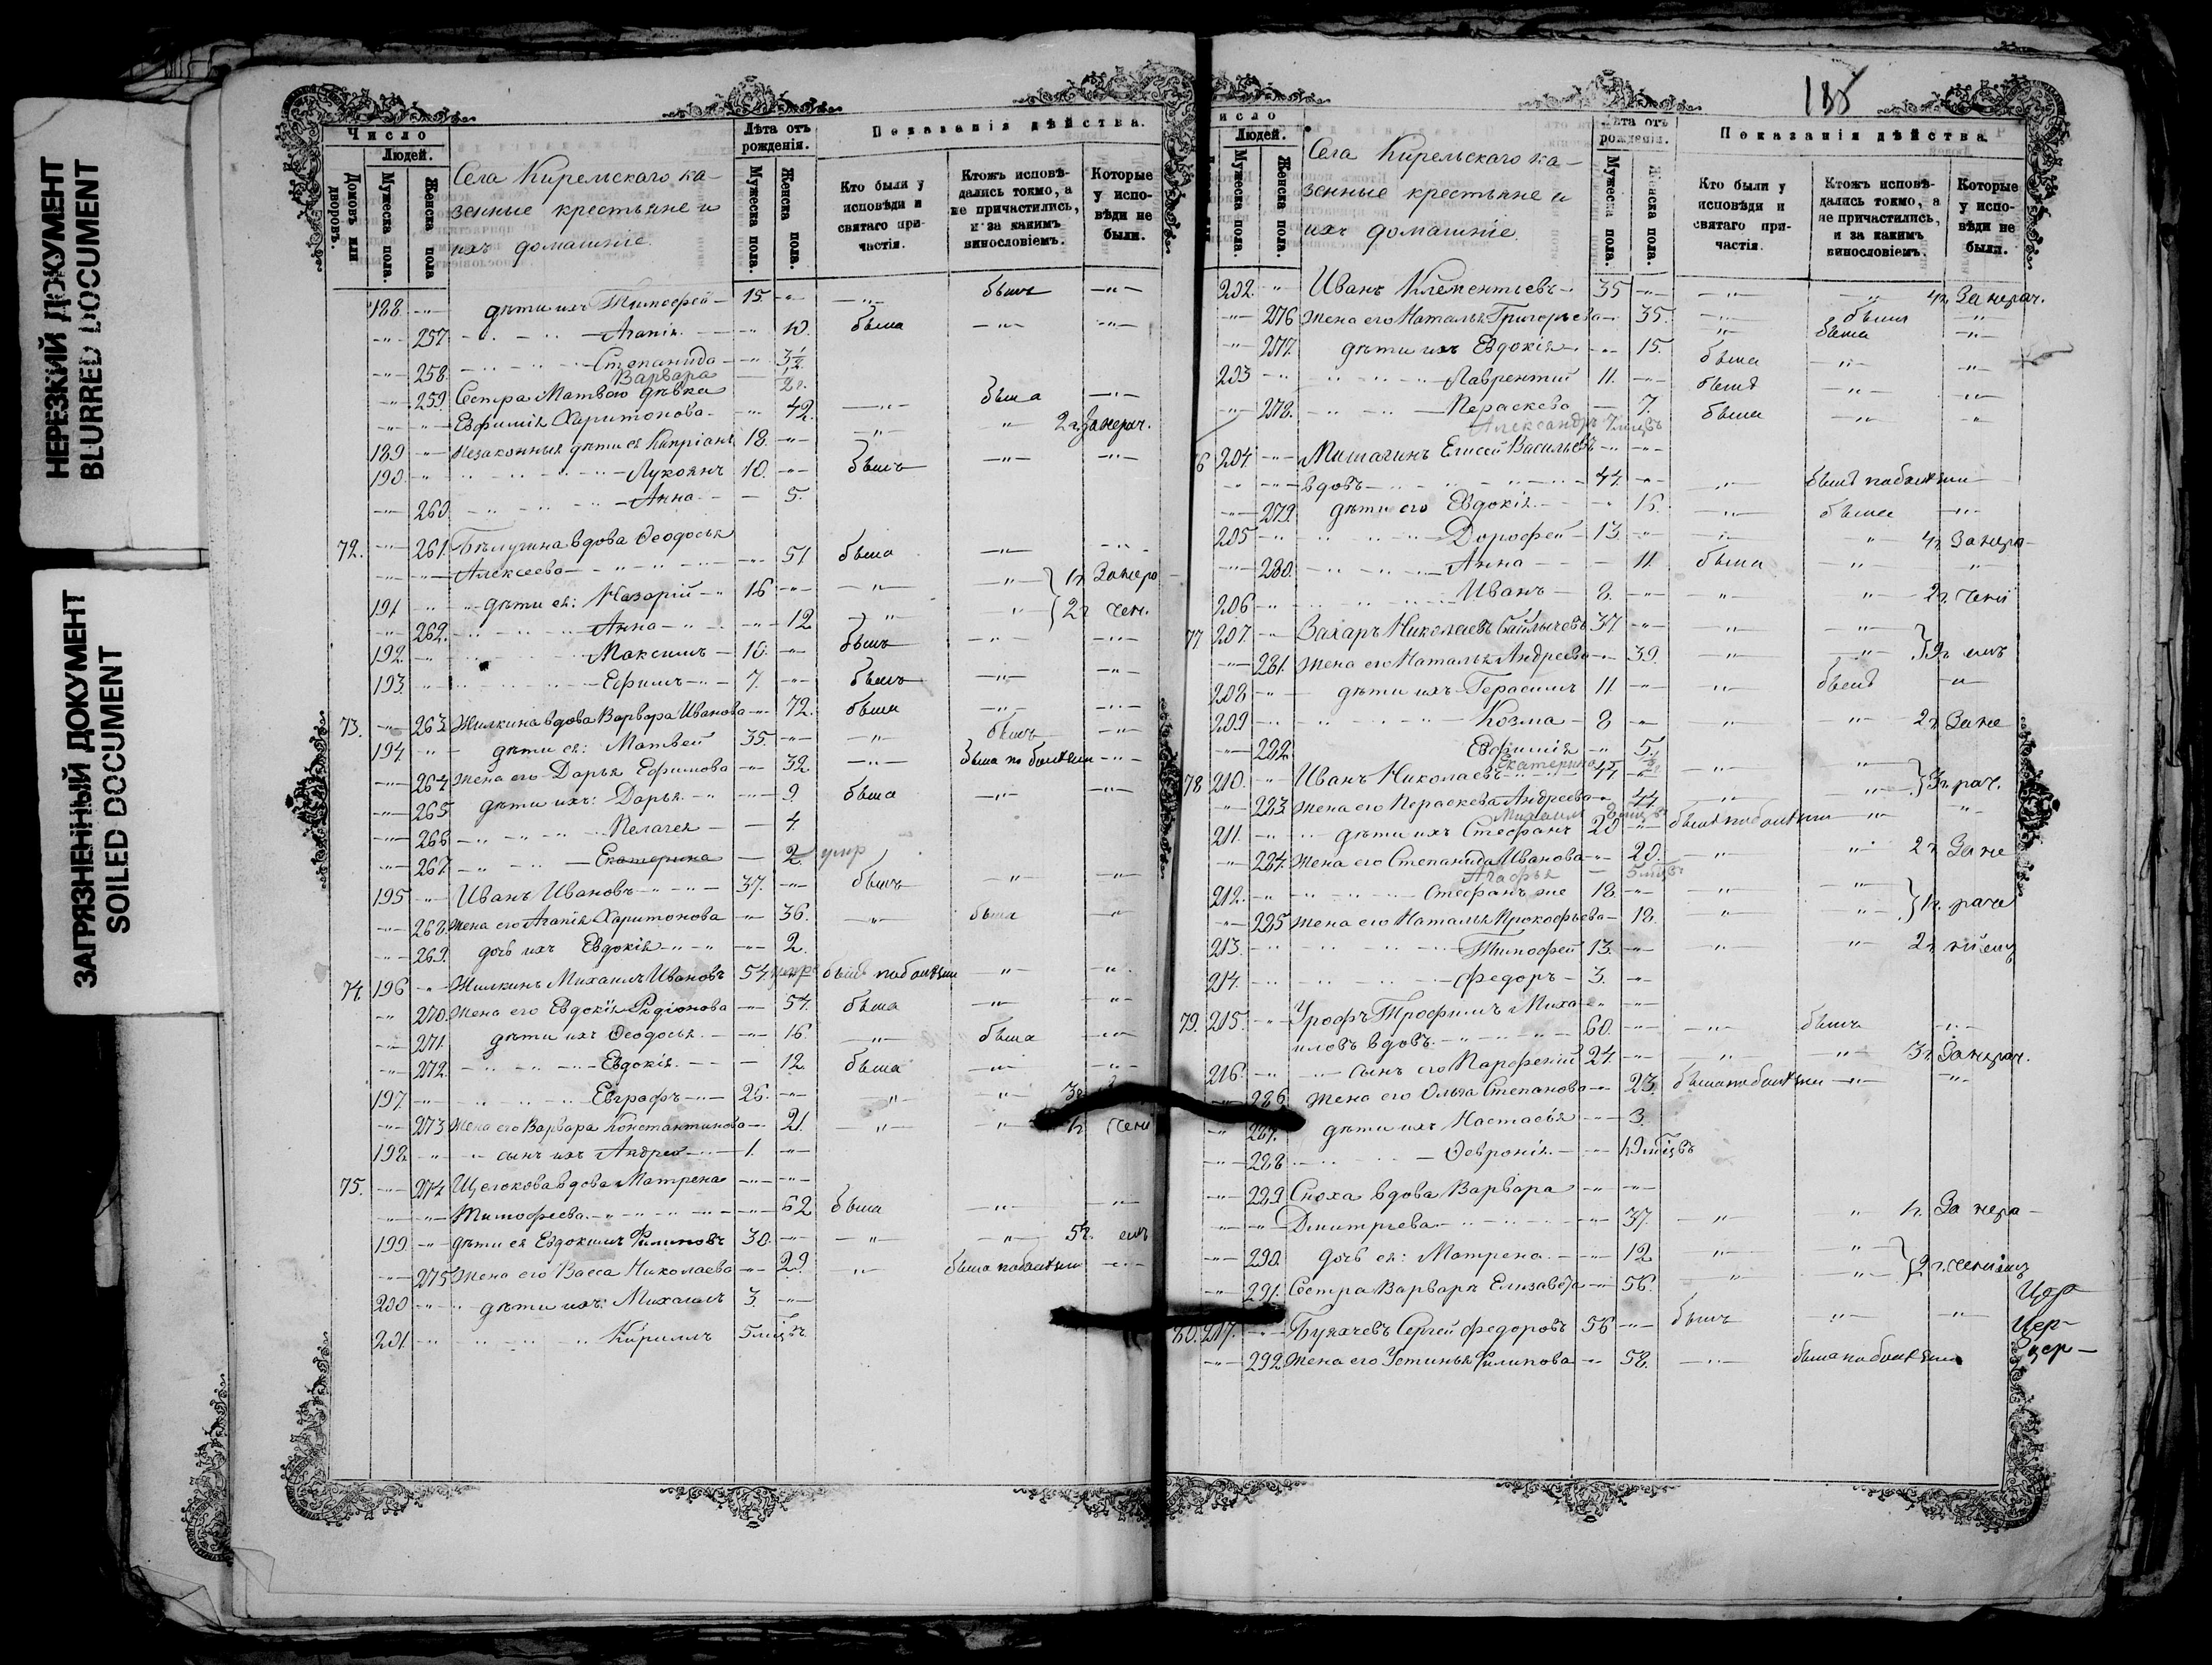 НЕРЕЗКИЙ ДОКУМЕНТ
BLURRED DOCUMENT
ЗАГРЯЗНЕННЫЙ ДОКУМЕНТ
SOILED DOCUMENT
Число
Людей.
Домовъ или дворовъ.
Мужеска пола.
Женска пола
Села Кирельскаго ка-
зенные крестьяне и
ихъ домашніе.
Лѣта отъ рожденія.
Мужеска пола.
Женска пола.
Показанія дѣйства.
Кто были у исповѣди и святаго причастія.
Ктожъ исповѣдались токмо, а не причастились, и за какимъ винословіемъ.
Которые у исповѣди не были.
188 дѣти ихъ Тимофей 15 былъ
257 Агапія 10 была
258 Степанида 3½
Варвара
259 Сестра Матвея дѣвка
Евфимія Харитонова 42 была
189 Незаконныя дѣти ея Кипріанъ 18 2 г. За нерач.
190 Лукоянъ 10 былъ
260 Анна 5
72 261 Бѣлугина вдова Ѳеодосья
Алексеева 51 была
191 дѣти ея: Назарій 16 1 г. За неро
262 Анна 12 2 г. чен.
192 Максимъ 10 былъ
193 Ефимъ 7 былъ
73 263 Жилкина вдова Варвара Иванова 72 была
194 дѣти ея: Матвей 35 былъ
264 Жена его Дарья Ефимова 32 была по болѣзни
265 дѣти ихъ: Дарья 9 была
266 Пелагея 4
267 Екатерина 2 умр
195 Иванъ Ивановъ 37 былъ
268 Жена его Агапія Харитонова 36 была
269 дочь ихъ Евдокія 2
74 196 Жилкинъ Михаилъ Ивановъ 54 былъ по болѣзни
270 Жена его Евдокія Родіонова 54 была
271 дѣти ихъ Ѳеодосья 16 была
272 Евдокія 12 была
197 Евграфъ 26
273 Жена его Варвара Константинова 21 чени
198 сынъ ихъ Андрей 1
75 274 Щелокова вдова Матрена
Тимофеева 62 была
199 дѣти ея Евдокимъ Филиповъ 30 5 г. емъ
275 Жена его Васса Николаева 29 была по болѣзни
200 дѣти ихъ: Михаилъ 3
201 Кирилъ 5 мцвъ
185
исло
Людей.
Мужеска пола.
Женска пола.
Села Кирельскаго ка-
зенные крестьяне и
ихъ домашніе.
Лѣта отъ рожденія.
Мужеска пола.
Женска пола.
Показанія дѣйства.
Кто были у исповѣди и святаго причастія.
Ктожъ исповѣдались токмо, а не причастились, и за какимъ винословіемъ.
Которые у исповѣди не были.
202 Иванъ Клементьевъ 35 4 г. За нерач.
276 Жена его Наталья Григорьева 35 была
277 дѣти ихъ Евдокія 15 была
203 Лаврентій 11 былъ
278 Пераскева 7 была
Александръ 7 мцвъ
6 204 Мишагинъ Елисей Васильевъ
вдовъ 44 былъ по болѣзни
279 дѣти его Евдокія 16 была
205 Дорофей 13 4 г. За нера-
280 Анна 11 была
206 Иванъ 8 2 г. чені
77 207 Захаръ Николаевъ 37
281 Жена его Наталья Андреева 39 емъ
208 дѣти ихъ Герасимъ 11 былъ
209 Козма 8 2 г. За не
282 Евфимія 5
Екатерина
78 210 Иванъ Николаевъ 44
283 Жена его Пераскева Андреева 44 3 г. рач.
Михаилъ
211 дѣти ихъ Стефанъ 20 былъ по болѣзни
284 Жена его Степанида Иванова 20 2 г. За не
Агафья 5 мцвъ
212 Стефанъ же 18
285 Жена его Наталья Прокофьева 18 1 г. раче
213 Тимофей 13 2 г. ніемъ
214 Федоръ 3
79 215 Урофъ Трофимъ Миха-
иловъ вдовъ 60 былъ
216 сынъ его Парфеній 24 3 г. За нерач.
286 Жена его Ольга Степанова 23 была по болѣзни
287 дѣти ихъ Настасья 3
288 Ѳевронія
289 Сноха вдова Варвара
Дмитріева 37 1 г. За нера-
290 дочь ея: Матрена 12
291 Сестра Варвары Елизавета 56 2 г. ченіемъ
80 217 Буяхчевъ Сергей Федоровъ 56 былъ
292 Жена его Устинья Филипова 58 была по болѣзни
Цер-
цер-